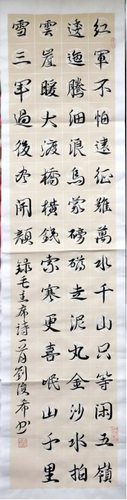 紅軍不怕遠征難萬水千山只等閑五嶺
逶迤騰細浪烏蒙磅礴走泥丸金沙水拍
雲崖暖大渡橋橫鐵索寒更喜岷山千里
雪三軍過後尽開顏 録毛主席詩一首劉俊希书